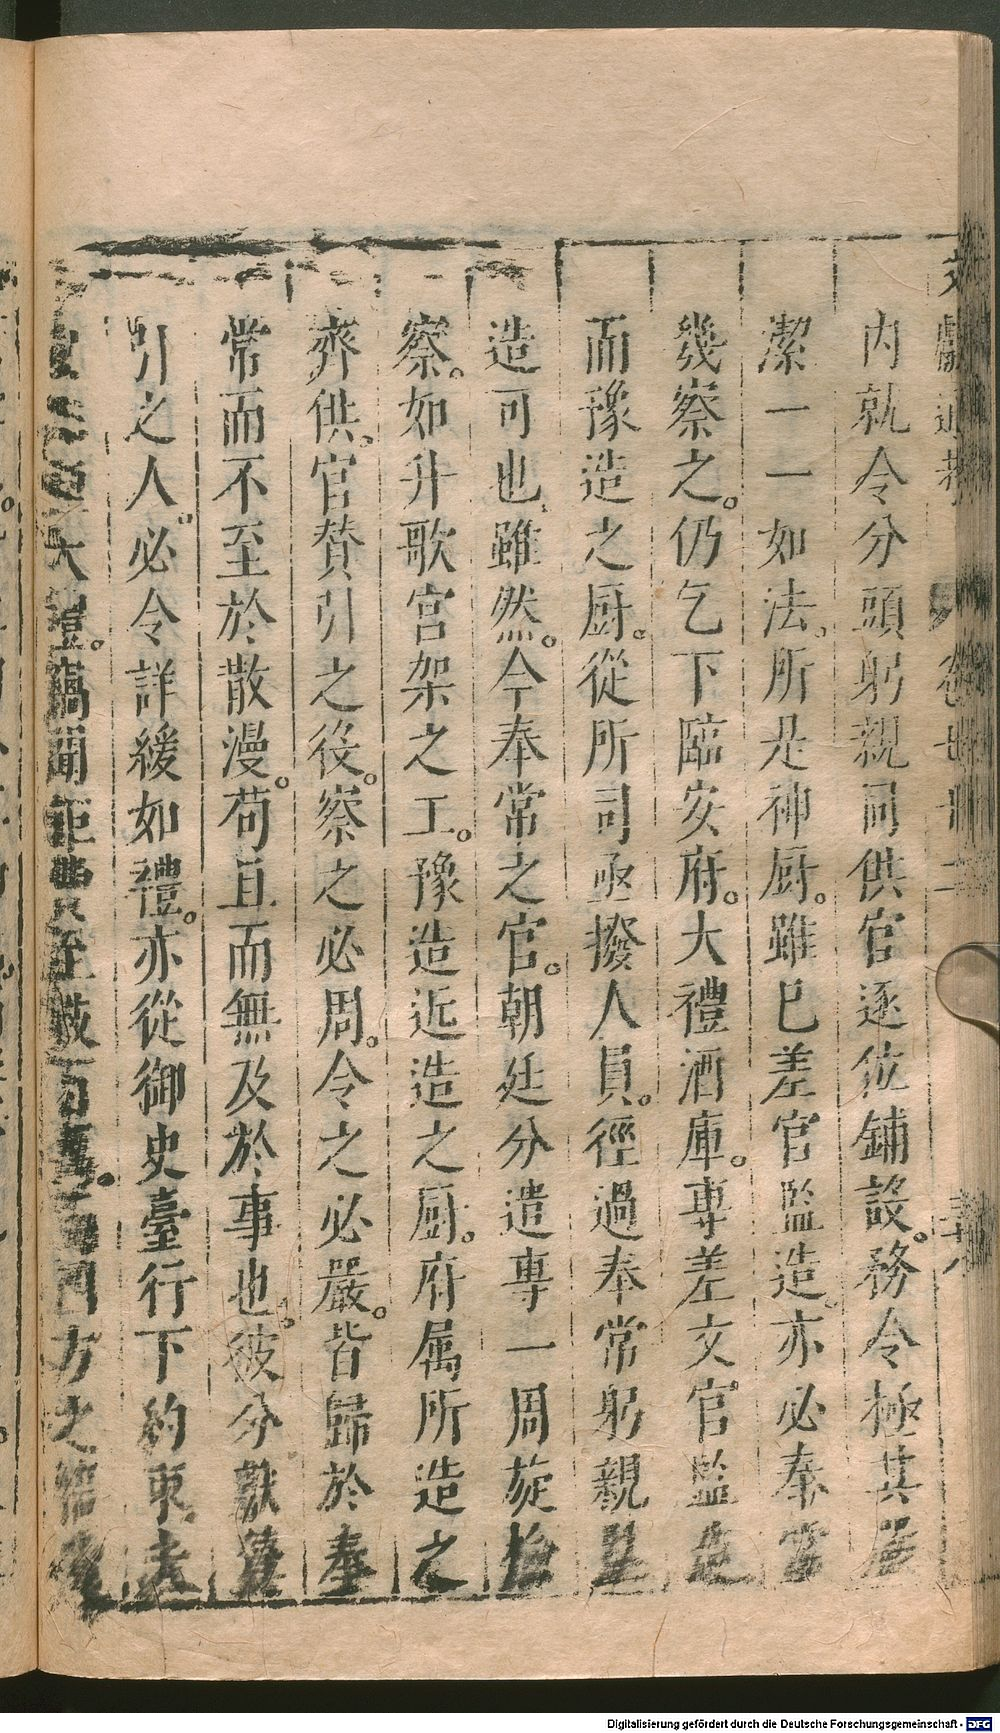 文獻通考 卷七十二
內就令分頭躬親同供官逐位鋪設務令極其嚴
潔一一如法所是神厨雖已差官監造亦必奉常
幾察之仍乞下臨安府大禮酒庫專差文官監造
而豫造之厨從所司亟撥人員徑過奉常躬親監
造可也雖然今奉常之官朝廷分遣專一周旋檢
察如升歌宮架之工豫造近造之厨府属所造之
齊供官贊引之役察之必周令之必嚴皆歸於奉
常而不至於散漫苟且而無及於事也彼分獻
引之人必令詳緩如禮亦從御史臺行下約束
大禮竊聞 費至 百 四方之
Digitalisierung gefördert durch die Deutsche Forschungsgemeinschaft - DFG